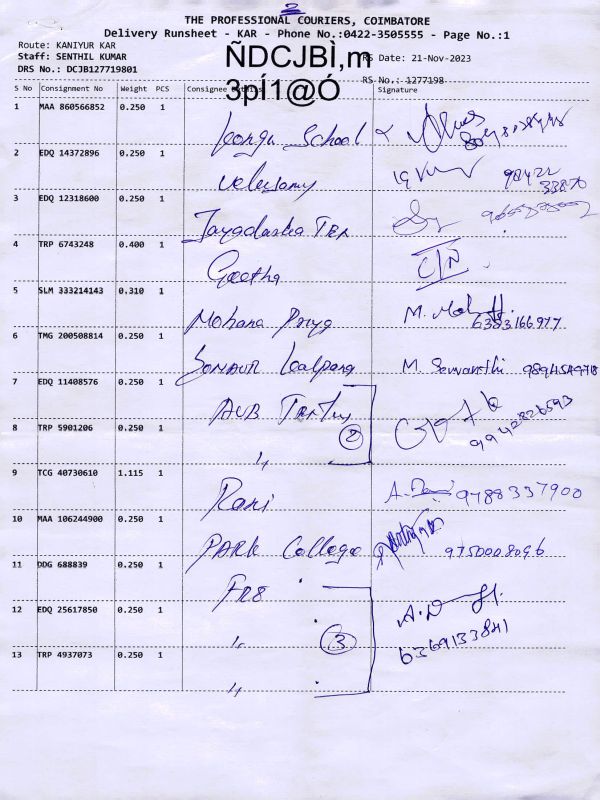 2
THE PROFESSIONAL COURIERS, COIMBATORE
Delivery Runsheet - KAR - Phone No.:0422-3505555 - Page No.:1
Route: KANIYUR KAR
Staff: SENTHIL KUMAR
RS Date: 21-Nov-2023
DRS No.: DCJB127719801
RS No.: 1277198
ÑDCJBÌ,m
3pÍ1@Ó
S No Consignment No Weight PCS Consignee Details Signature
1 MAA 860566852 0.250 1 School
2 EDQ 14372896 0.250 1 Velusamy 98422
33870
3 EDQ 12318600 0.250 1
4 TRP 6743248 0.400 1 Geetha
5 SLM 333214143 0.310 1 Mohana Priya M.
6383166977
6 TMG 200508814 0.250 1 M.
7 EDQ 11408576 0.250 1 AVB
9942826593
8 TRP 5901206 0.250 1 〃 2
9 TCG 40730610 1.115 1 Rani A. 9788337900
10 MAA 106244900 0.250 1 PARK College 9750008096
11 DDG 688839 0.250 1
12 EDQ 25617850 0.250 1 〃 3 6369133841
13 TRP 4937073 0.250 1 〃